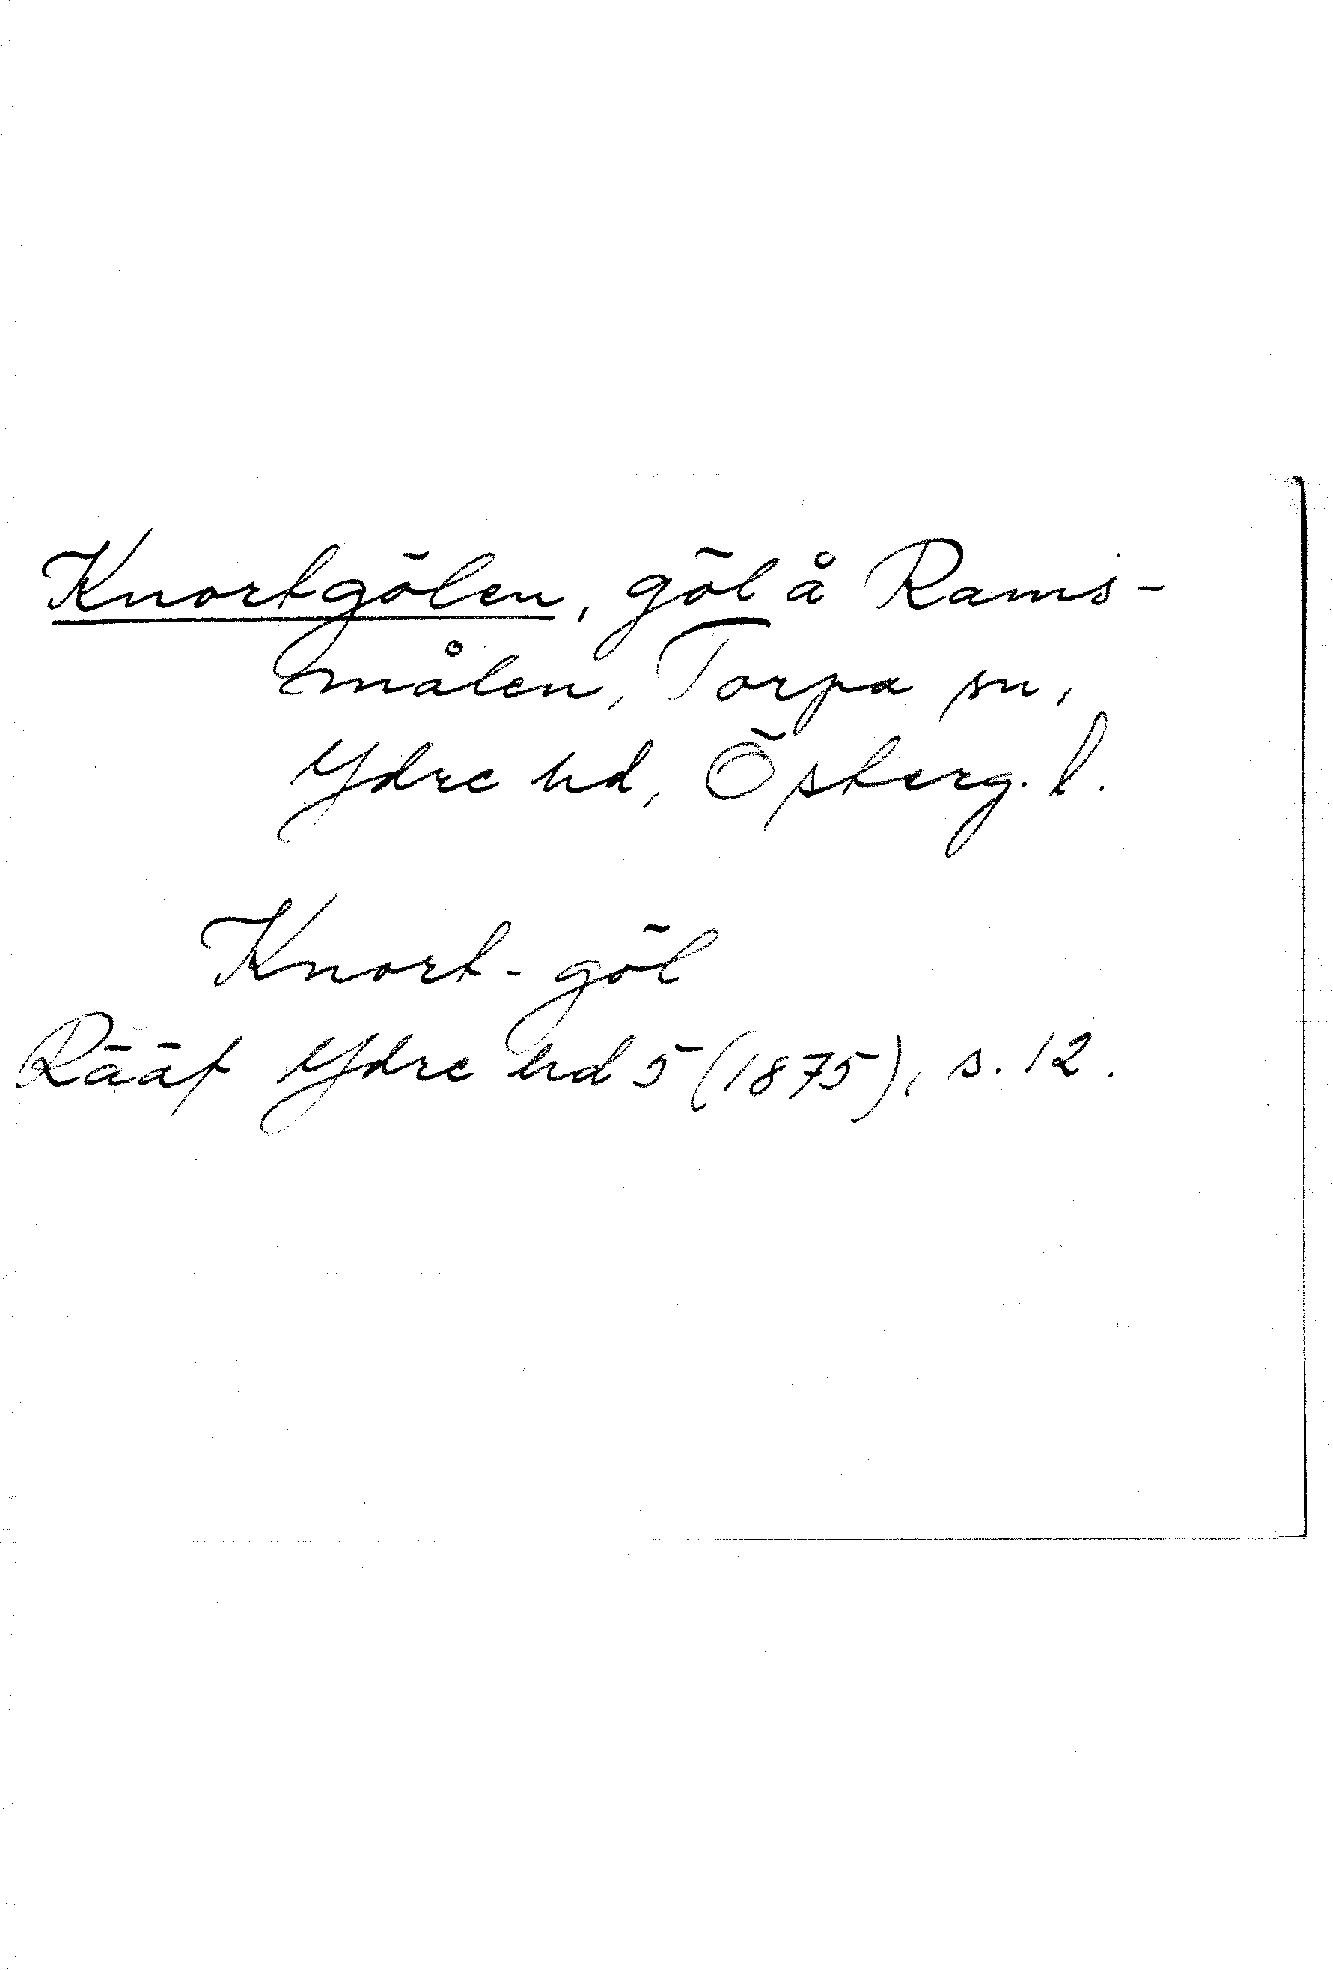 Knortgölen, göl å Rams-
målen, Torpa sn,
Ydre hd, Österg. l.
Knort-göl
Rääf Ydre hd 5 (1875), s. 12.